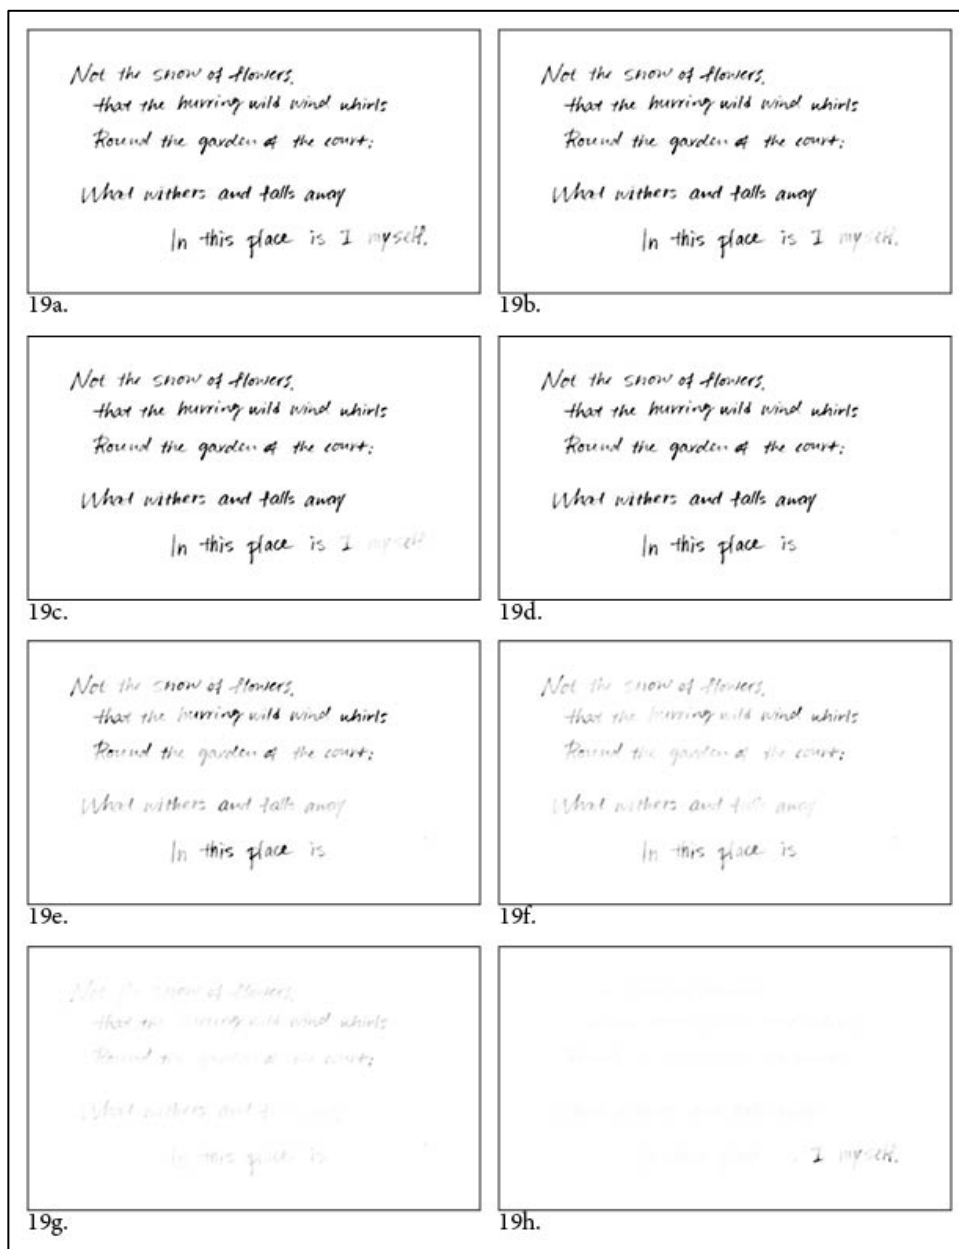 Not the snow of flowers,
that the hurring wild wind whirls
Round the garden of the court:
What withers and falls away
In this place is I myself.
19a.
Not the snow of flowers,
that the hurring wild wind whirls
Round the garden of the court:
What withers and falls away
In this place is I myself.
19b.
Not the snow of flowers,
that the hurring wild wind whirls
Round the garden of the court:
What withers and falls away
In this place is I myself
19c.
Not the snow of flowers,
that the hurring wild wind whirls
Round the garden of the court:
What withers and falls away
In this place is
19d.
Not the snow of flowers,
that the hurring wild wind whirls
Round the garden of the court:
What withers and falls away
In this place is
19e.
Not the snow of flowers,
that the hurring wild wind whirls
Round the garden of the court:
What withers and falls away
In this place is
19f.
Not the snow of flowers,
that the hurring wild wind whirls
Round the garden of the court:
What withers and
In this place is
19g.
I myself.
19h.